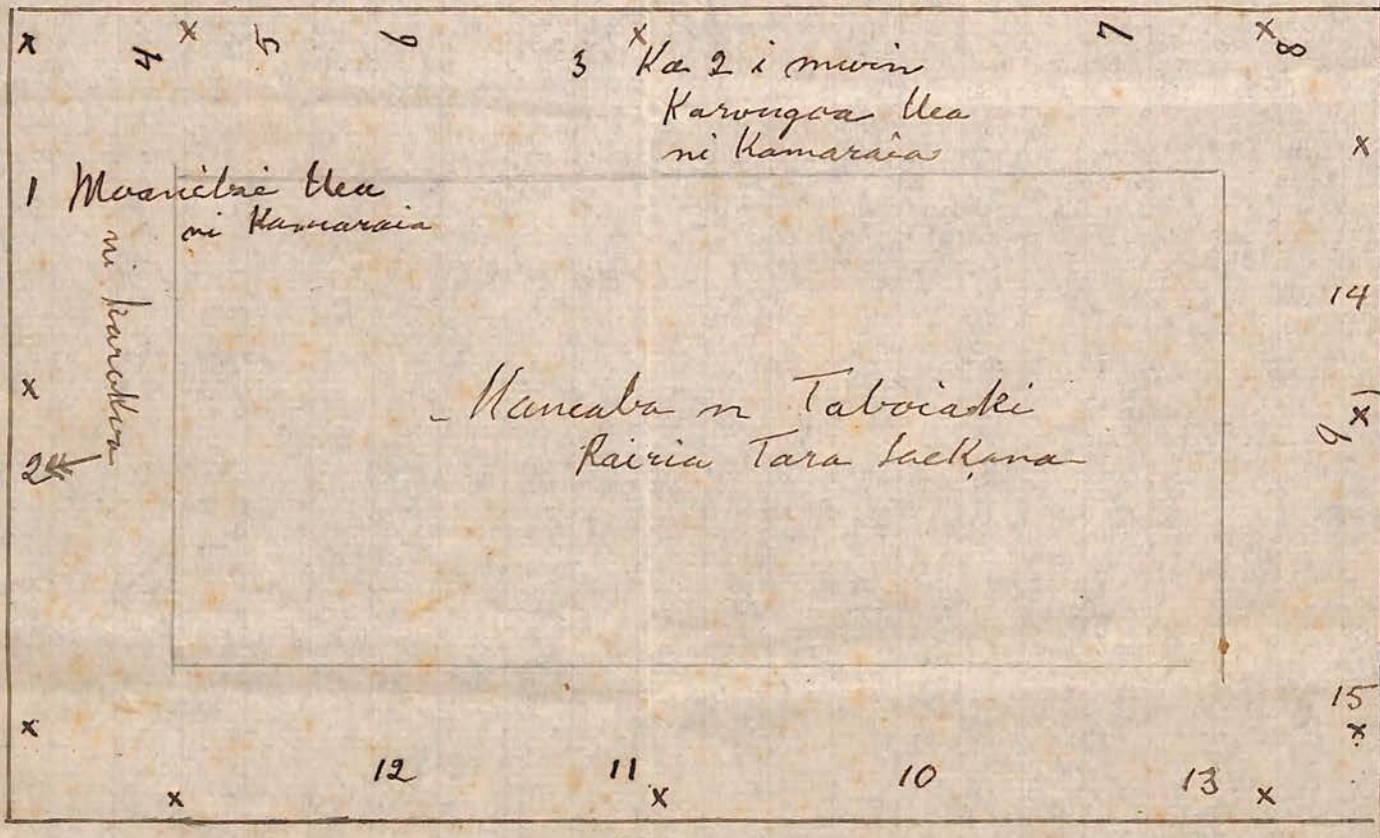 x 4 x 5 6 x 7 x 8
3 Ka 2 i muin
Karongoa Uea
ni Kamaraia
x
1 Moanibai Uea
ni Kamaraia
ni karokoa
14
x
x 9
2
Maneaba n Taboiaki
Rairia Tara
x
15
x
12 11 10 13
x x x